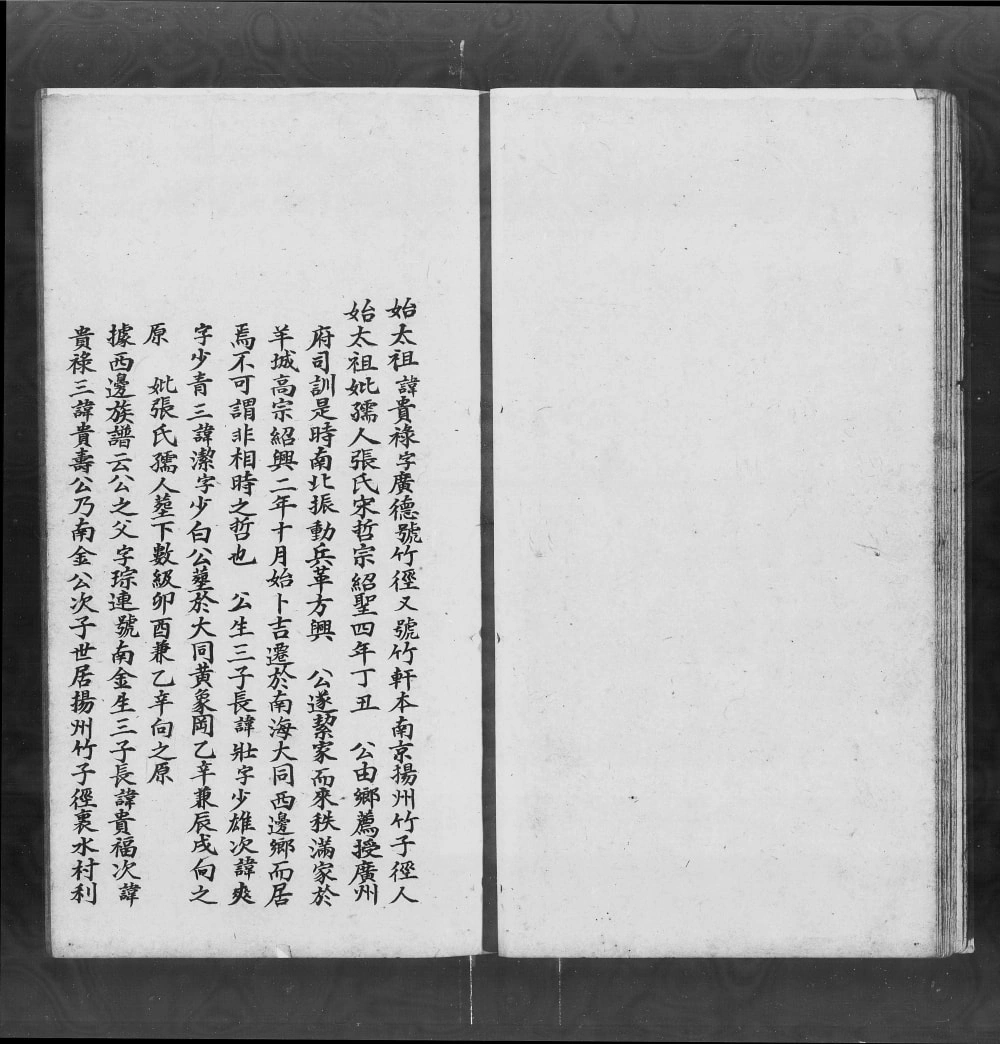 始太祖諱貴祿字廣德號竹徑又號竹軒本南京揚州竹子徑人
始太祖妣孺人張氏宋哲宗紹聖四年丁丑　公由鄉薦授廣州
府司訓是時南北振動兵革方興　公遂挈家而來秩滿家於
羊城高宗紹興二年十月始卜吉遷於南海大同西邊鄉而居
焉不可謂非相時之哲也　公生三子長諱壯字少雄次諱爽
字少青三諱潔字少白公墓於大同黃象岡乙辛兼辰戌向之
原　妣張氏孺人墓下數級卯酉兼乙辛向之原
據西邊族譜云公之父字琮連號南金生三子長諱貴福次諱
貴祿三諱貴壽公乃南金公次子世居揚州竹子徑裏水村利